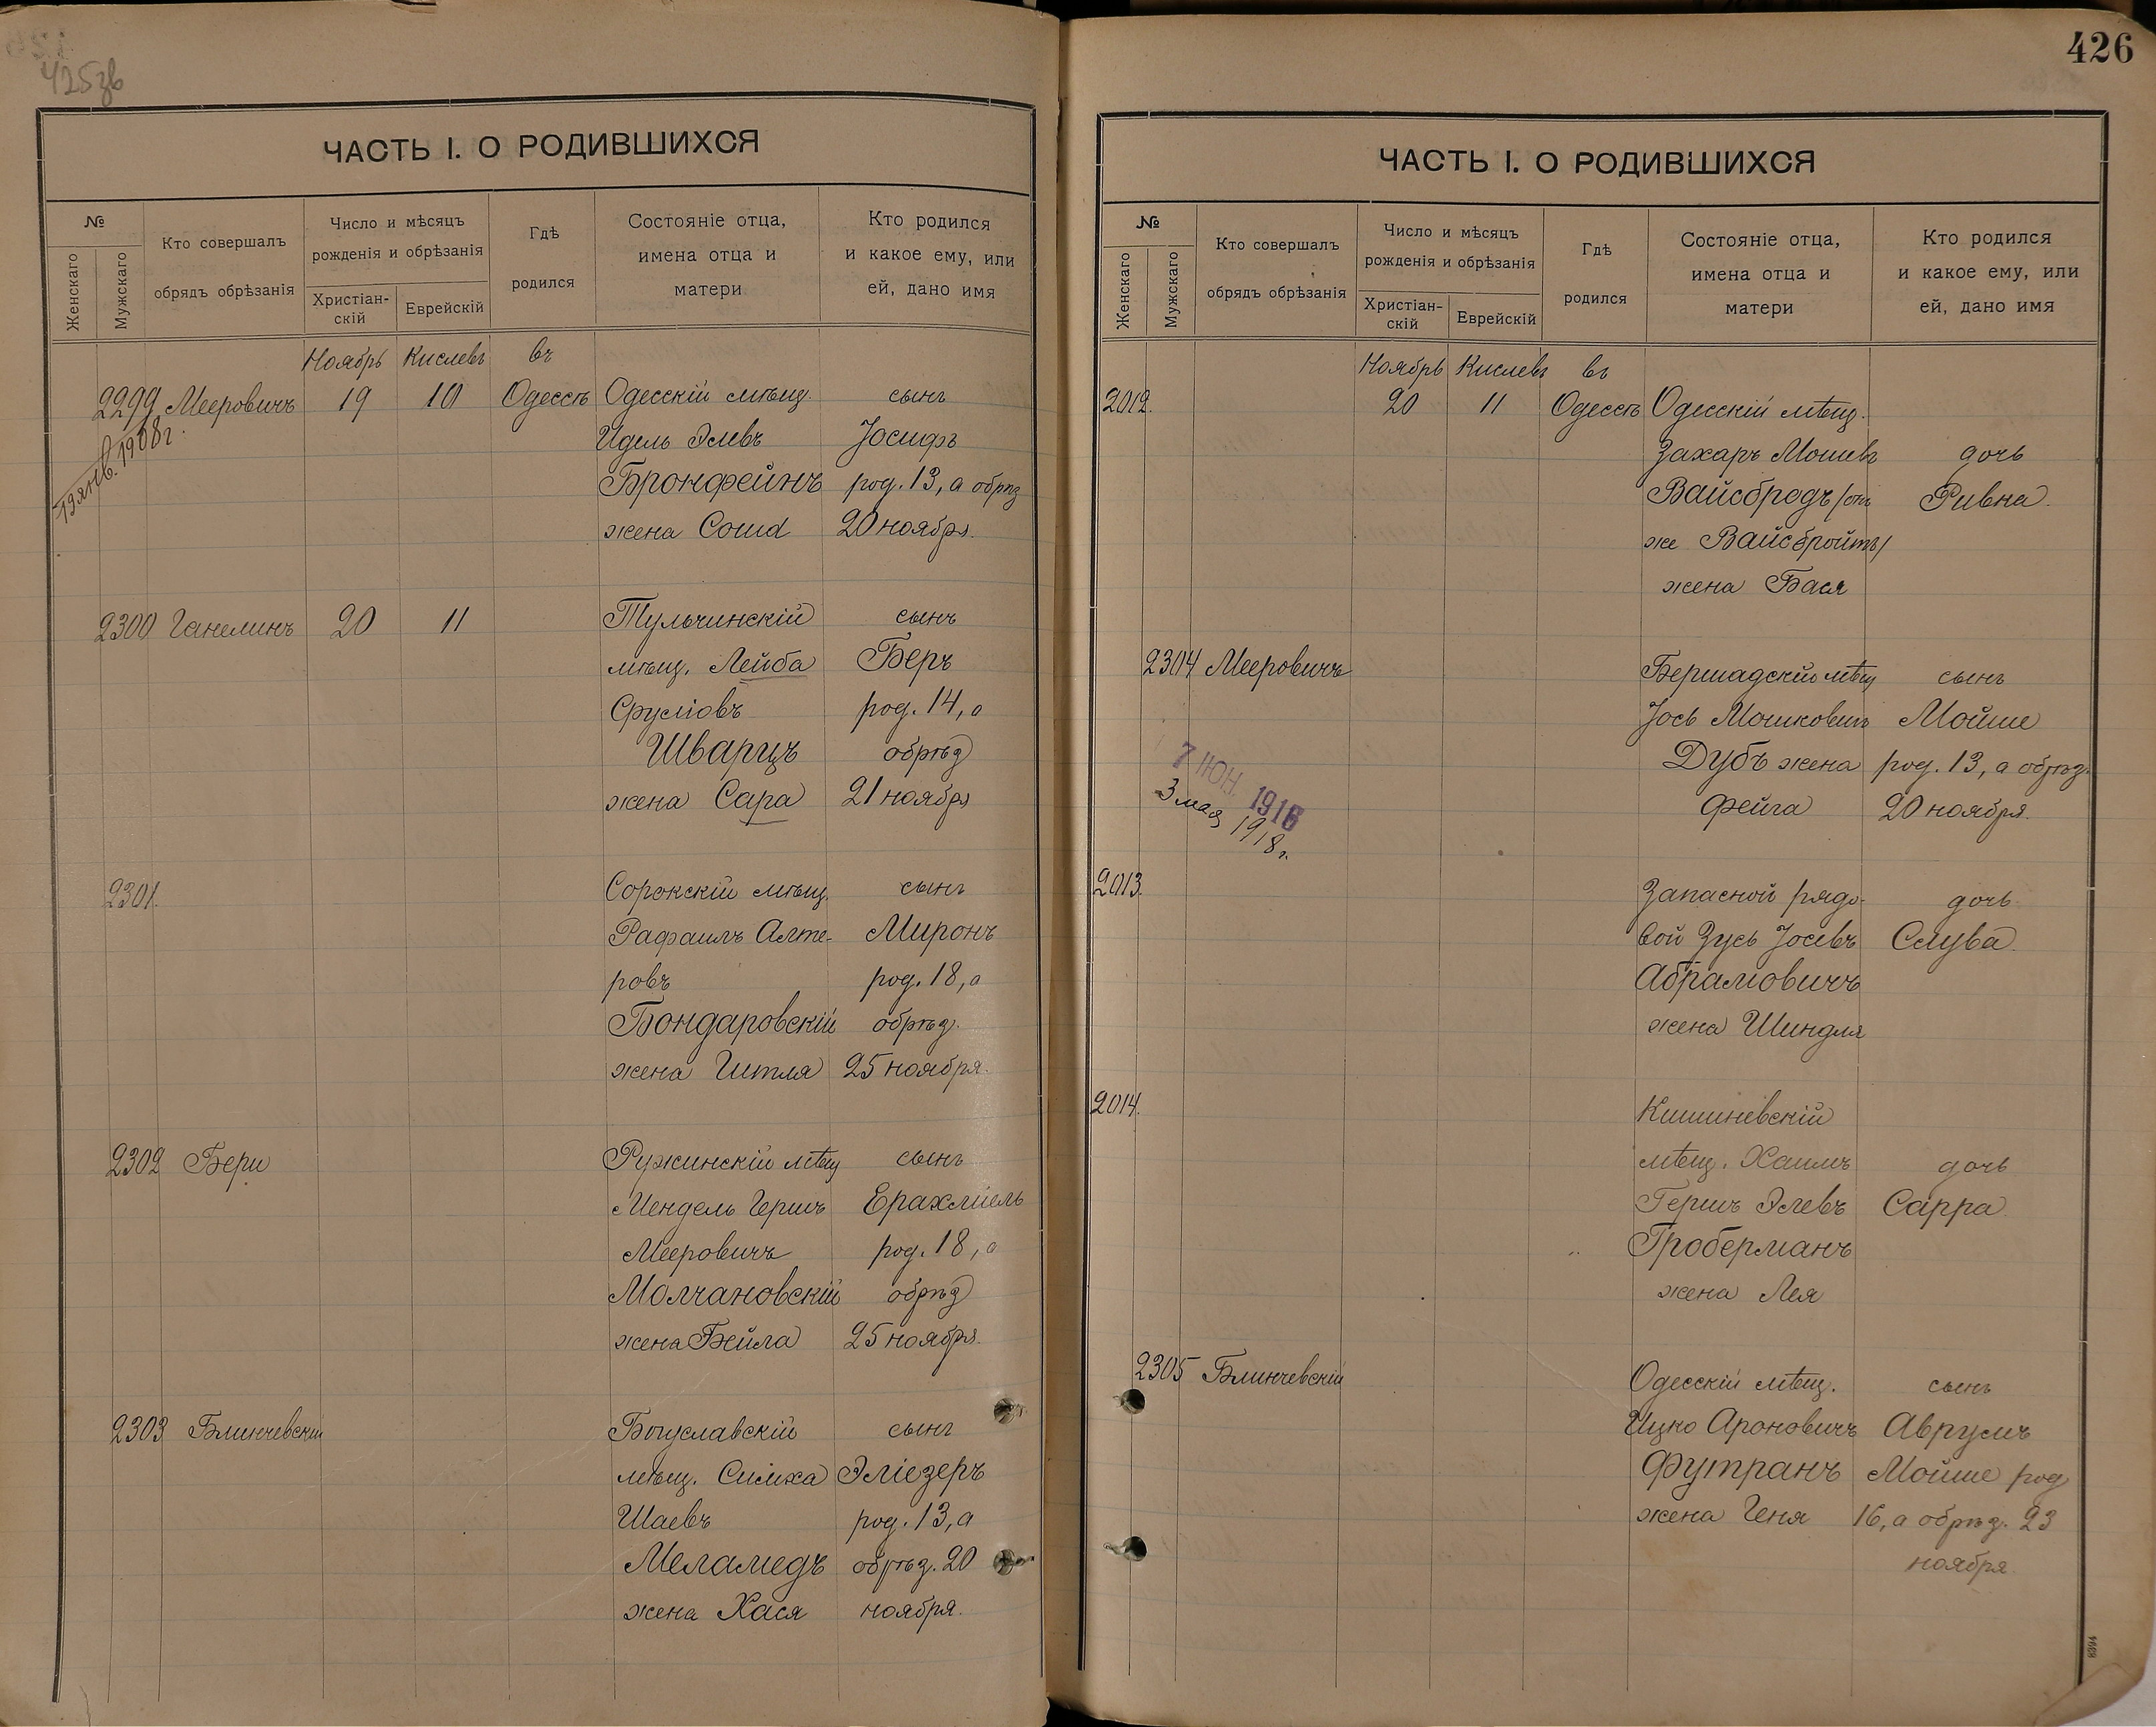 425зв
ЧАСТЬ I. О РОДИВШИХСЯ
№
Женскаго
Мужскаго
Кто совершалъ
обрядъ обрѣзанія
Число и мѣсяцъ
рожденія и обрѣзанія
Христіан-
скій
Еврейскій
Гдѣ
родился
Состояніе отца,
имена отца и
матери
Кто родился
и какое ему, или
ей, дано имя
Ноябрь Кислевъ въ
2299 Мееровичъ 19 10 Одессѣ Одесскій мѣщ. сынъ
янв. 1908г.
Идель Элевъ Іосифъ
Бронфейнъ род. 13, а обрѣз
жена Сошя 20 ноября.
2300 Ганелинъ 20 11 Тульчинскій сынъ
мѣщ. Лейба Беръ
Сруліовъ род. 14, а
Шварцъ обрѣз
жена Сара 21 ноября
2301. Сорокскій мѣщ. сынъ
Рафаилъ Алте- Миронъ
ровъ род. 18, а
Бондаровскій обрѣз.
жена Гитля 25 ноября.
2302 Бери Ружинскій мѣщ сынъ
Мендель Гершъ Ерахміель
Мееровичъ род. 18, а
Молчановскій обрѣз
жена Бейла 25 ноября.
2303 Блинчевскій Богуславскій сынъ
мѣщ. Симха Эліезеръ
Шаевъ род. 13, а
Меламедъ обрѣз. 20
жена Хася ноября.
426
ЧАСТЬ I. О РОДИВШИХСЯ
№
Женскаго
Мужскаго
Кто совершалъ
обрядъ обрѣзанія
Число и мѣсяцъ
рожденія и обрѣзанія
Христіан-
скій
Еврейскій
Гдѣ
родился
Состояніе отца,
имена отца и
матери
Кто родился
и какое ему, или
ей, дано имя
Ноябрь Кислевъ въ
2012. 20 11 Одессѣ Одесскій мѣщ.
Захаръ Мошевъ дочь
Вайсбродъ /онъ Ривка.
же Вайсбройтъ/
жена Бася
2304 Мееровичъ Бершадскій мѣщ сынъ
Іось Мошковичъ Мойше
Дубъ жена род. 13, а обрѣз.
Фейга 20 ноября.
7 ЮН. 1916
3 мая 1918г.
2013. Запасной рядо- дочь
вой Зусь Іосевъ Слува.
Абрамовичъ
жена Шиндля
2014. Кишиневскій
мѣщ. Хаимъ дочь
Гершъ Элевъ Сарра.
Гроберманъ
жена Лея
2305 Блинчевскій Одесскій мѣщ. сынъ
Ицко Ароновичъ Аврумъ
Футранъ Мойше род
жена Геня 16, а обрѣз. 23
ноября.
8394